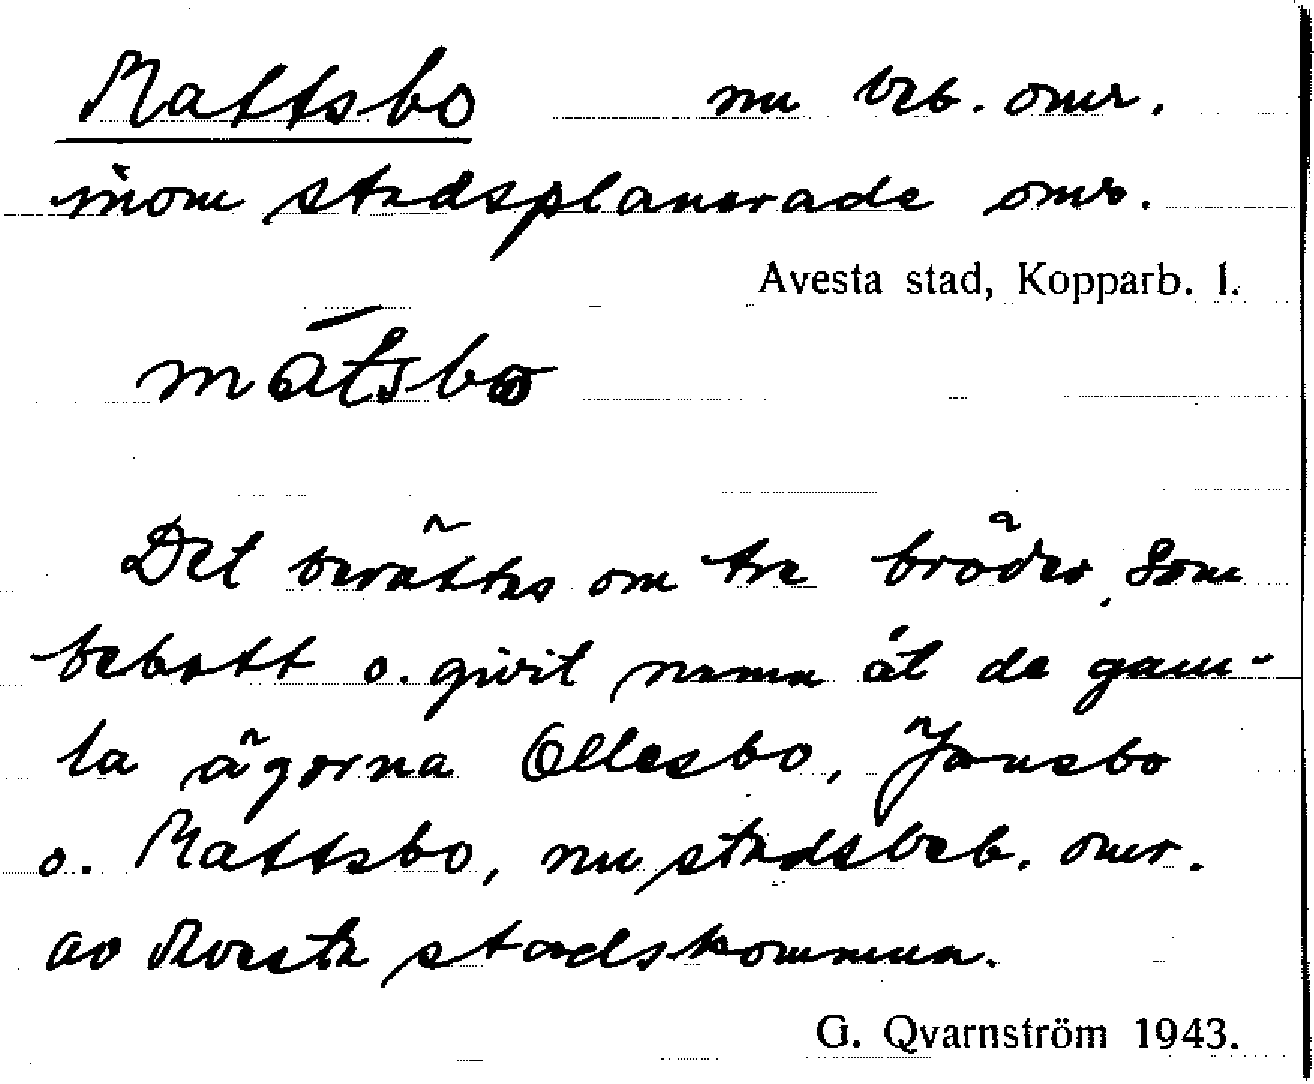 Mattsbo nu beb. omr.
inom stadsplanerade omr.
Avesta stad, Kopparb. l.
mátsbo
Det berättas om tre bröder, som
bebott o. givit namn åt de gam-
la ägorna Ollesbo, Jansbo
o. Mattsbo, nu stadsbeb. omr.
av Avesta stadskommun.
G. Qvarnström 1943.